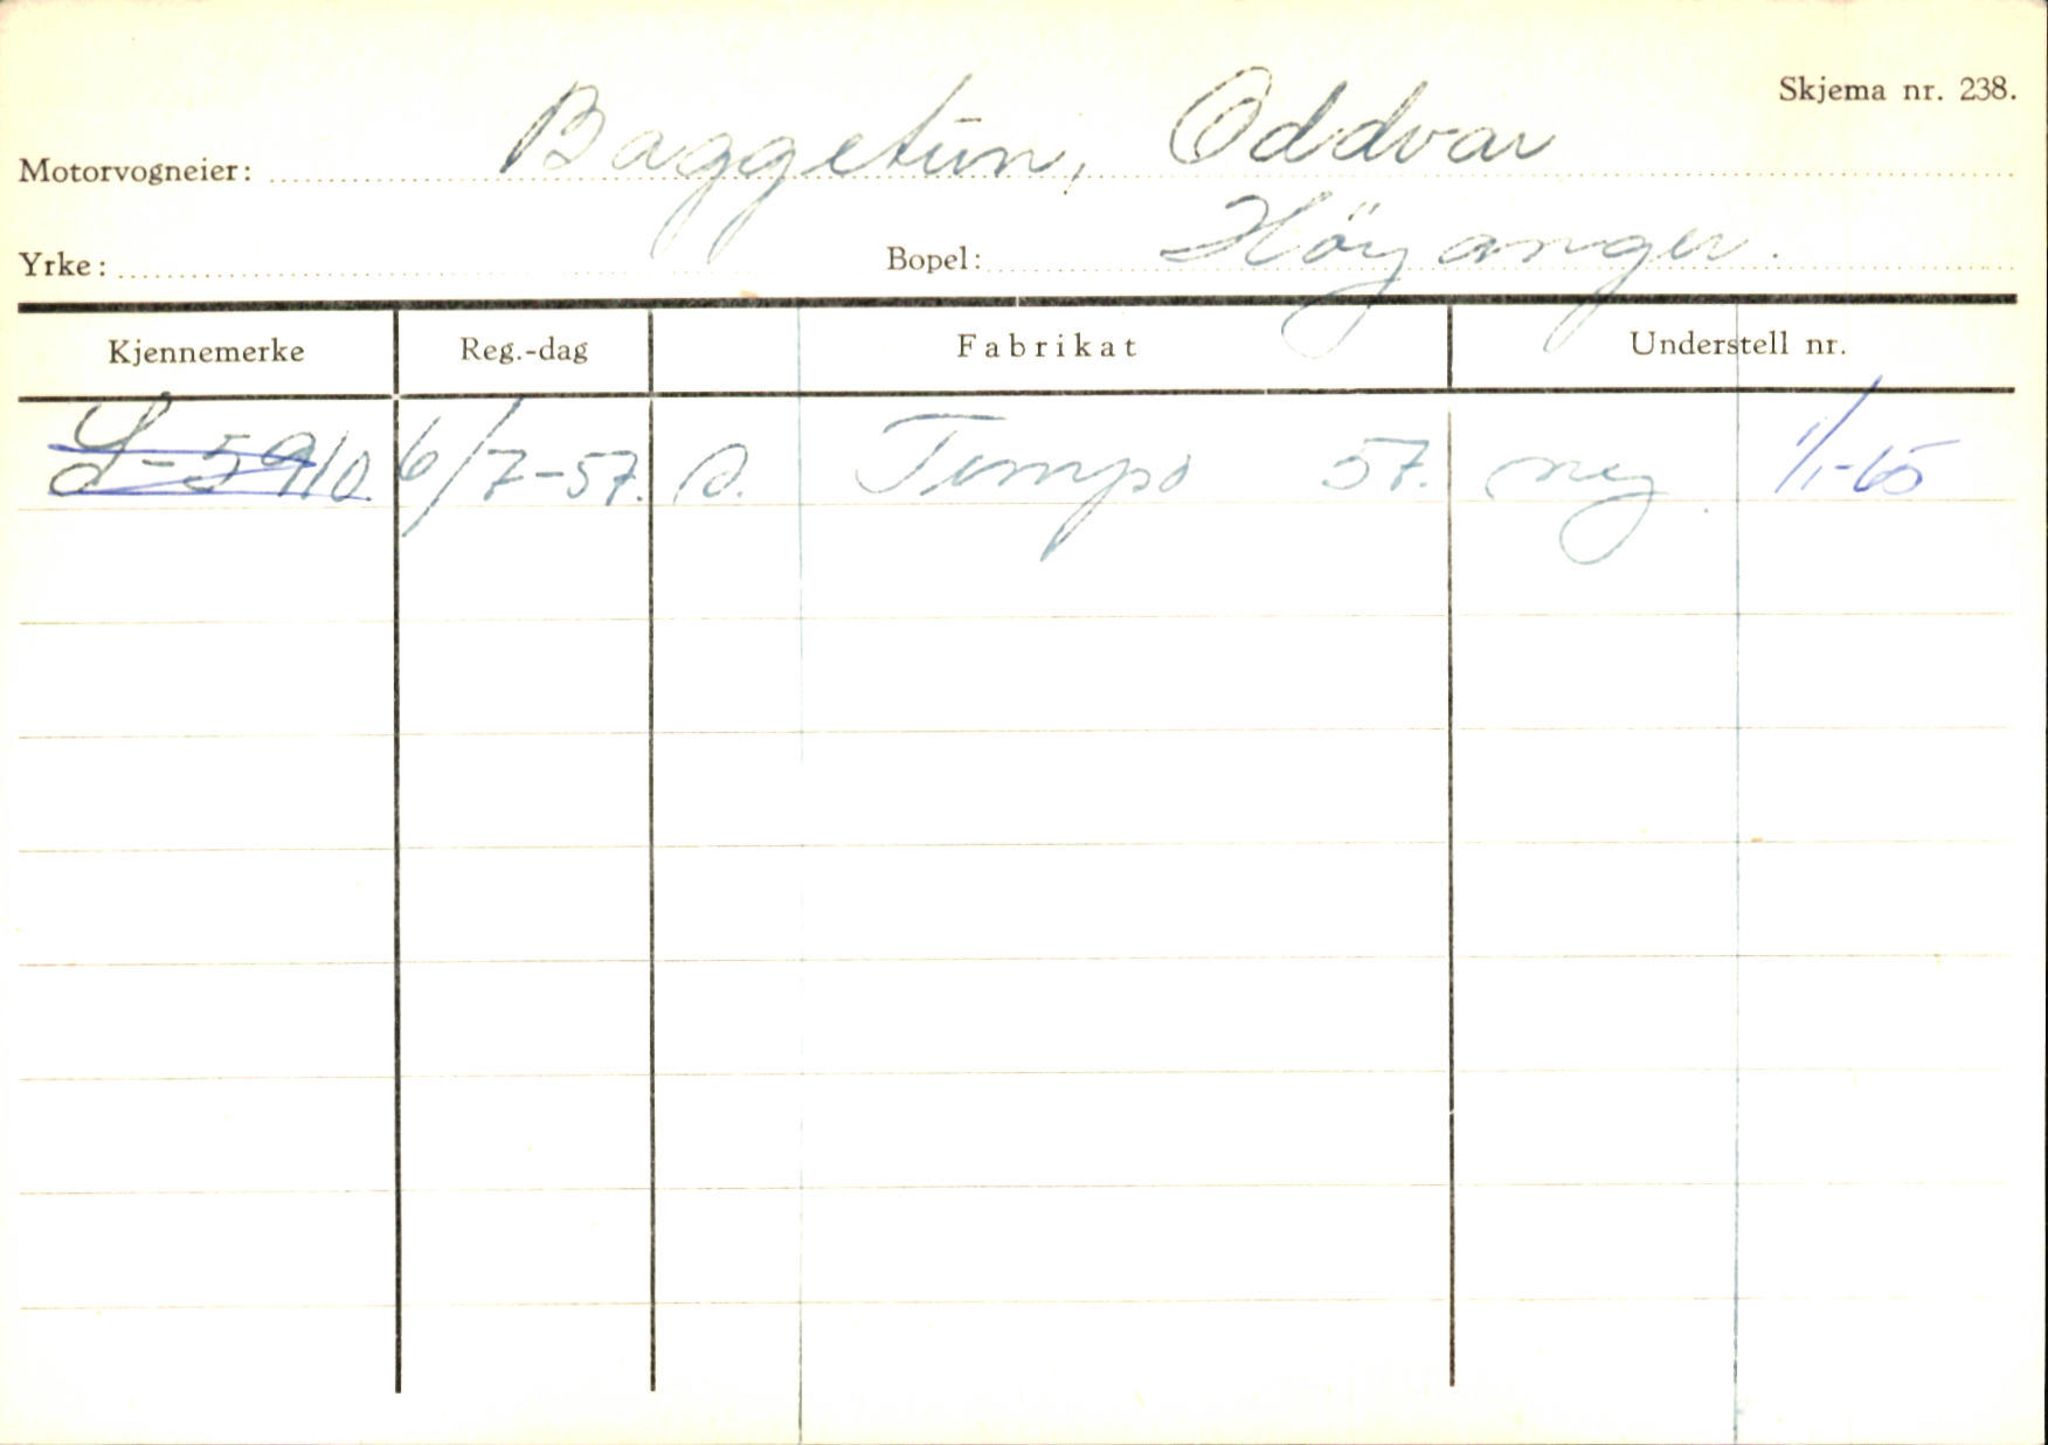 Skjema nr. 238.
Motorvogneier: Baggetun, Oddvar
Yrke: Bopel: Höyanger.
Kjennemerke Reg.-dag Fabrikat Understell nr.
S-5910 6/7-57. Tempo 57. ny 1/1-65